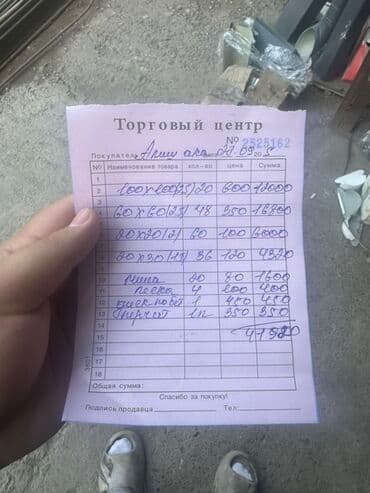 Торговый центр
№ 2525162
Покупатель Алиш ака 09 20
№ Наименование товара кол-во цена Сумма
1
2 100х100 20 600 12000
3
4 60х60 48 350 16800
20х20 60 100 6000
8 20х30 36 120 4320
10 20 80 1600
11 Леска 4 100 400
12 1 450 450
13 1п 350 350
14
15
16
17
18
Общая сумма:
Спасибо за покупку!
Подпись продавца Тел: